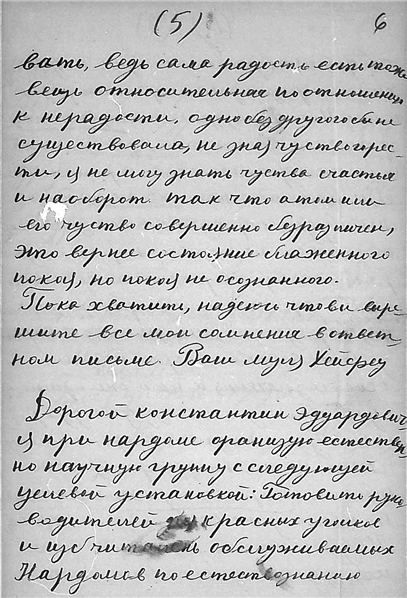 (5) 6
вать, ведь сама радость есть тоже
вещь относительная по отношению
к нерадости, одно без другого бы не
существовала, не зная чуства горес-
ти, я не могу знать чуства счастья
и наоборот так что атом или
его чуство совершенно безразличен,
это вернее состояние блаженного
покоя, но покоя не осознанного.
Пока хватит, надеюсь что ви выре-
шите все мои сомнения в ответ-
ном письме. Ваш Муля Хейфец
Дорогой константин Эдуардович
я при нардоме организую естествен-
но научную группу с следующей
целевой установкой: Готовить руко-
водителей красных уголков
и изб читален обслуживаемых
Нардомов по естествознанию